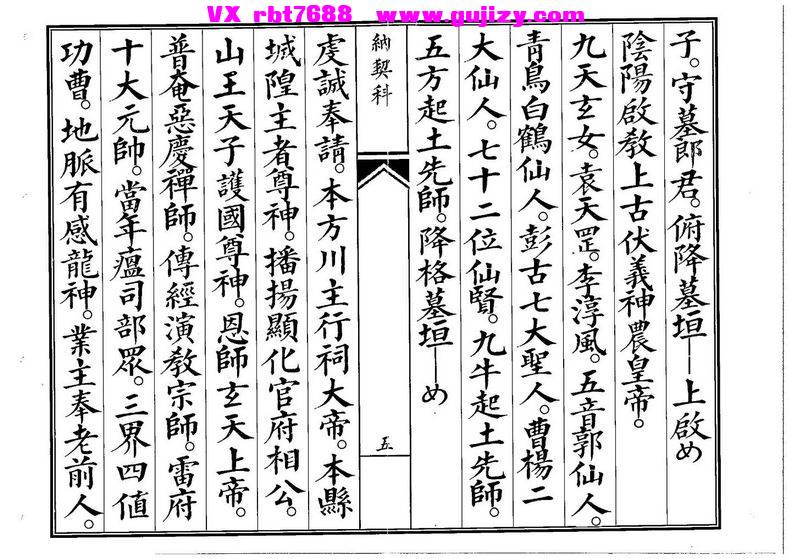 VX rbt7688 www.gujizy.com
子。守墓郎君。俯降墓垣——上啟め
陰陽啟教上古伏義神農皇帝。
九天玄女。袁天罡。李淳風。五音郭仙人。
青鳥白鶴仙人。彭古七大聖人。曹楊二
大仙人。七十二位仙賢。九牛起土先師。
五方起土先師。降格墓垣——め
納契科
五
虔誠奉請。本方川主行祠大帝。本縣
城隍主者尊神。播揚顯化官府相公。
山王天子護國尊神。恩師玄天上帝。
普奄惡慶禪師。傳經演教宗師。雷府
十大元帥。當年瘟司部眾。三界四值
功曹。地脈有感龍神。業主奉老前人。